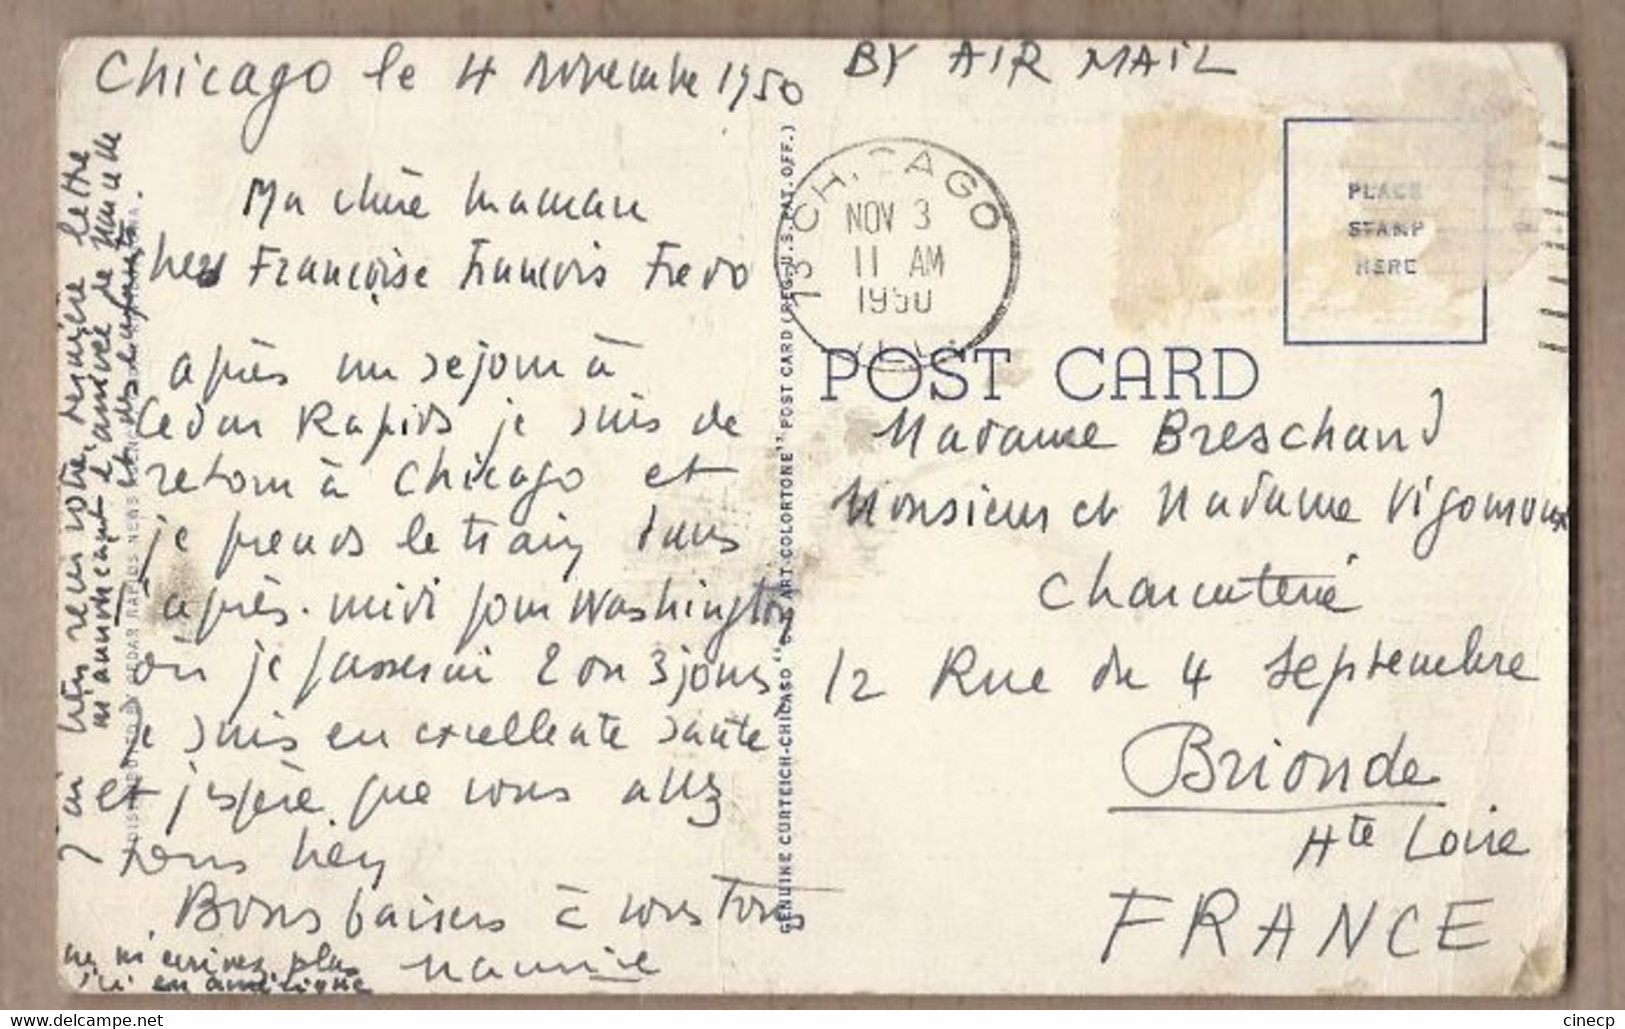 Chicago le 4 novembre 1950
Ma chère maman
chers Françoise François Fredo
après un sejour à
Cedar Rapids je suis de
retour à Chicago et
je prends le train dans
l'après-midi pour Washington
où je passerai 2 ou 3 jours
je suis en excellente santé
et j'espère que vous allez
tous bien
Bons baisers à vous Tous
Maurice
J'ai bien reçu votre dernière lettre
m'annonçant l'arrivée de
et des enfants.
ne m'ecrivez plus
ici en amérique
DISTRIBUTED BY CEDAR RAPIDS NEWS
GENUINE CURTEICH-CHICAGO "C.T. ART-COLORTONE" POST CARD (REG. U.S. PAT. OFF.)
BY AIR MAIL
CHICAGO
NOV 3
11 AM
1950
13
PLACE
STAMP
HERE
POST CARD
Madame Breschand
Monsieur et Madame Vigouroux
Charcuterie
12 Rue du 4 Septembre
Brionde
Hte Loire
FRANCE
www.delcampe.net
cinecp